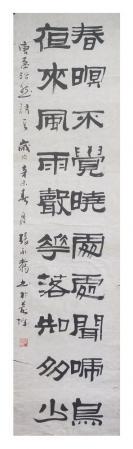 春眠不覺曉處處聞啼鳥
夜來風雨聲花落知多少
唐孟浩然詩一首 歲次辛未春月